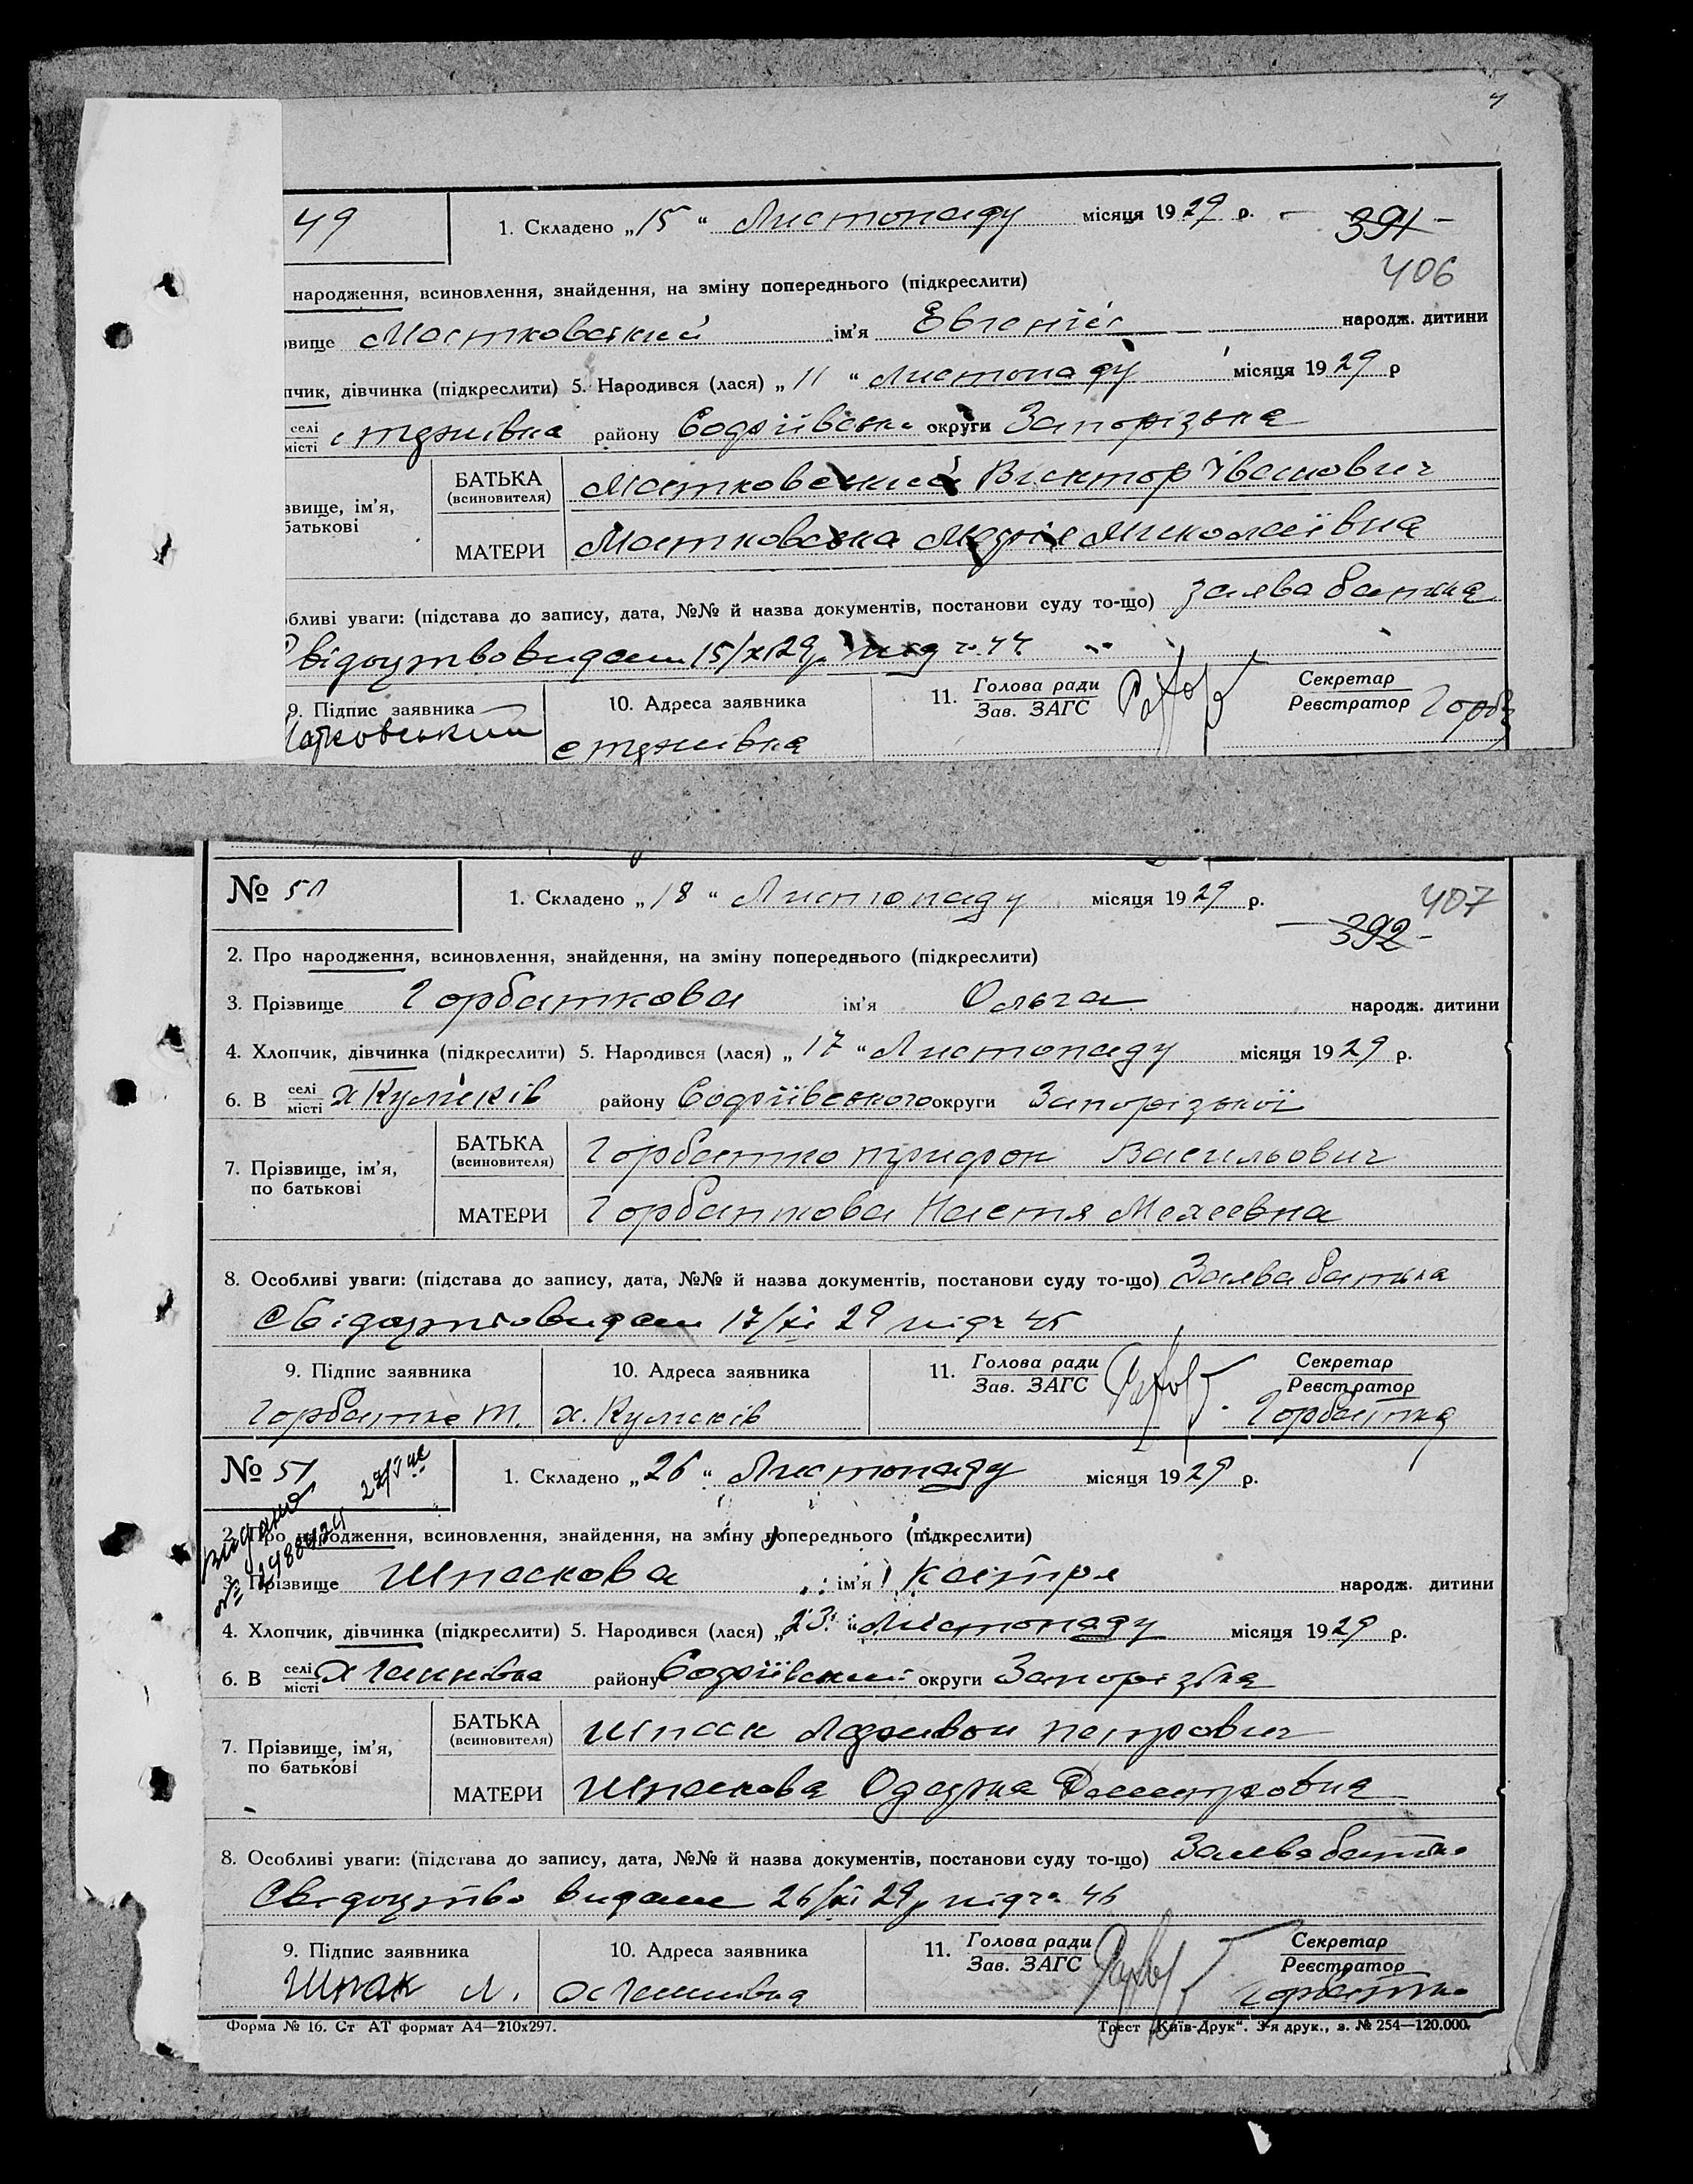 49
1. Складено „15“ Листопаду місяця 1929 р. — 391 —
406
народження, всиновлення, знайдення, на зміну попереднього (підкреслити)
звище Матковський ім'я Евгеній народж. дитини
пчик, дівчинка (підкреслити) 5. Народився (лася) „11“ Листопаду місяця 1929 р
селі
місті району Софіївська округи Запорізька
БАТЬКА
(всиновителя) Матковський Виктор Іванович
звище, ім'я,
батькові
МАТЕРИ Матковська Марія Миколаївна
бливі уваги: (підстава до запису, дата, №№ й назва документів, постанови суду то-що) заява батька
Свідоцтво видан 15/XI 29р. під № 44
9. Підпис заявника 10. Адреса заявника 11. Голова ради Секретар
Зав. ЗАГС Реєстратор Горб
Матковський
№ 50
1. Складено „18“ Листопаду місяця 1929 р.
407
— 392 —
2. Про народження, всиновлення, знайдення, на зміну попереднього (підкреслити)
3. Прізвище Горбаткова ім'я Ольга народж. дитини
4. Хлопчик, дівчинка (підкреслити) 5. Народився (лася) „17“ Листопаду місяця 1929 р.
6. В селі
місті х Куліків району Софіївського округи Запорізької
БАТЬКА
(всиновителя) Горбатко Трифон Васильович
7. Прізвище, ім'я,
по батькові
МАТЕРИ Горбаткова Настя
8. Особливі уваги: (підстава до запису, дата, №№ й назва документів, постанови суду то-що) Заява батька
Свідоцтво видан 17/XI 29 під № 45
9. Підпис заявника 10. Адреса заявника 11. Голова ради Секретар
Зав. ЗАГС Реєстратор
Горбатко Т. х. Куліків Горбатко
№ 51
1. Складено „26“ Листопаду місяця 1929 р.
Видано
2. Про народження, всиновлення, знайдення, на зміну попереднього (підкреслити)
3. Прізвище Шпакова ім'я Катря народж. дитини
4. Хлопчик, дівчинка (підкреслити) 5. Народився (лася) „23“ Листопаду місяця 1929 р.
6. В селі
місті х Ганнівка району Софіївський округи Запорізька
БАТЬКА
(всиновителя) Шпак Ларивон Петрович
7. Прізвище, ім'я,
по батькові
МАТЕРИ Шпакова Одарка Дмитровна
8. Особливі уваги: (підстава до запису, дата, №№ й назва документів, постанови суду то-що) Заява батька
Свідоцтво видане 26/XI 29р під № 46
9. Підпис заявника 10. Адреса заявника 11. Голова ради Секретар
Зав. ЗАГС Реєстратор
Шпак Л. х Ганнівка Горбатко
Форма № 16. Ст АТ формат А4—210х297. Трест „Київ-Друк“. 3-я друк., з. № 254—120.000.